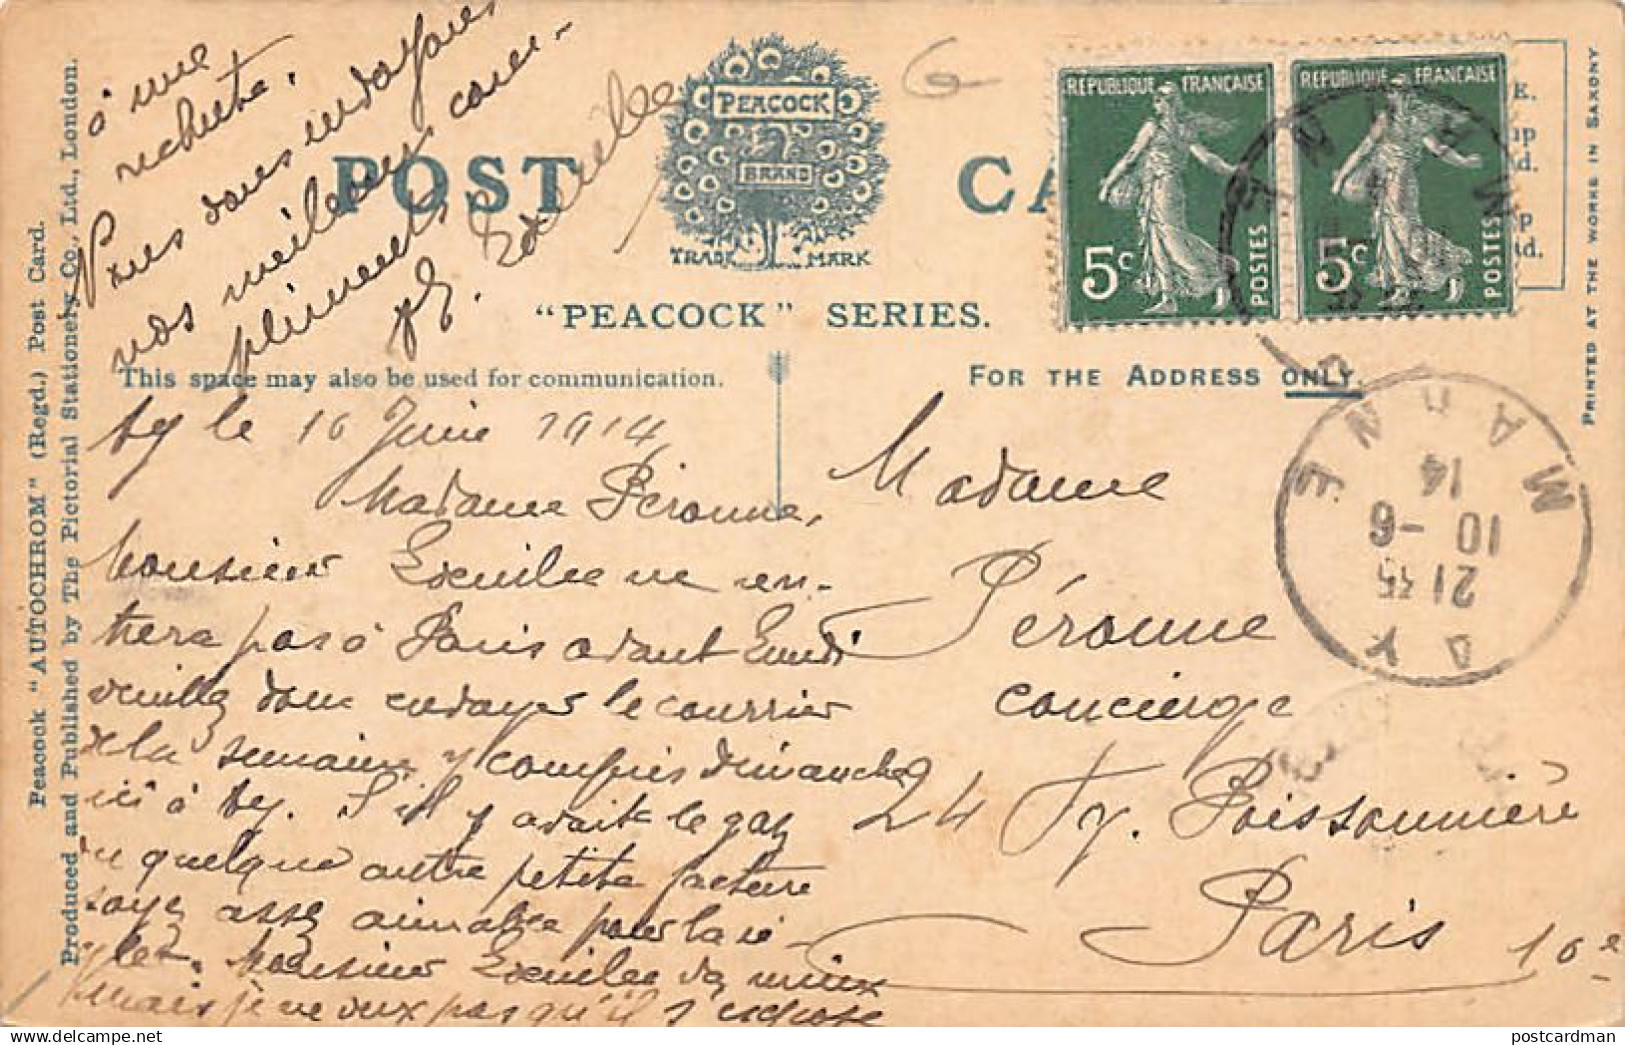 à une
rechute.
Nous vous envoyons
nos meilleurs com-
pliments
Exenilee
POST CA
PEACOCK
BRAND
TRADE MARK
"PEACOCK" SERIES.
This space may also be used for communication.
FOR THE ADDRESS ONLY.
RÉPUBLIQUE FRANÇAISE
5c
POSTES
RÉPUBLIQUE FRANÇAISE
5c
POSTES
PRINTED AT THE WORKS IN SAXONY
Peacock "AUTOCHROM" (Regd.) Post Card.
Produced and Published by The Pictorial Stationery Co., Ltd., London.
AY
2135
10-6
14
MARNE
Ay le 10 Juin 1914
Madame Péronne,
Monsieur Exenilee ne ren-
trera pas à Paris avant Lundi
veuillez donc envoyer le courrier
de la semaine y compris dimanche
ici à Ay. S'il y avait le gaz
ou quelque autre petite facture
soyez assez aimable pour la ré-
gler. Monsieur Exenilee va mieux
mais je ne veux pas qu'il s'expose
Madame
Péronne
concierge
24 Fg. Poissonnière
Paris
10e